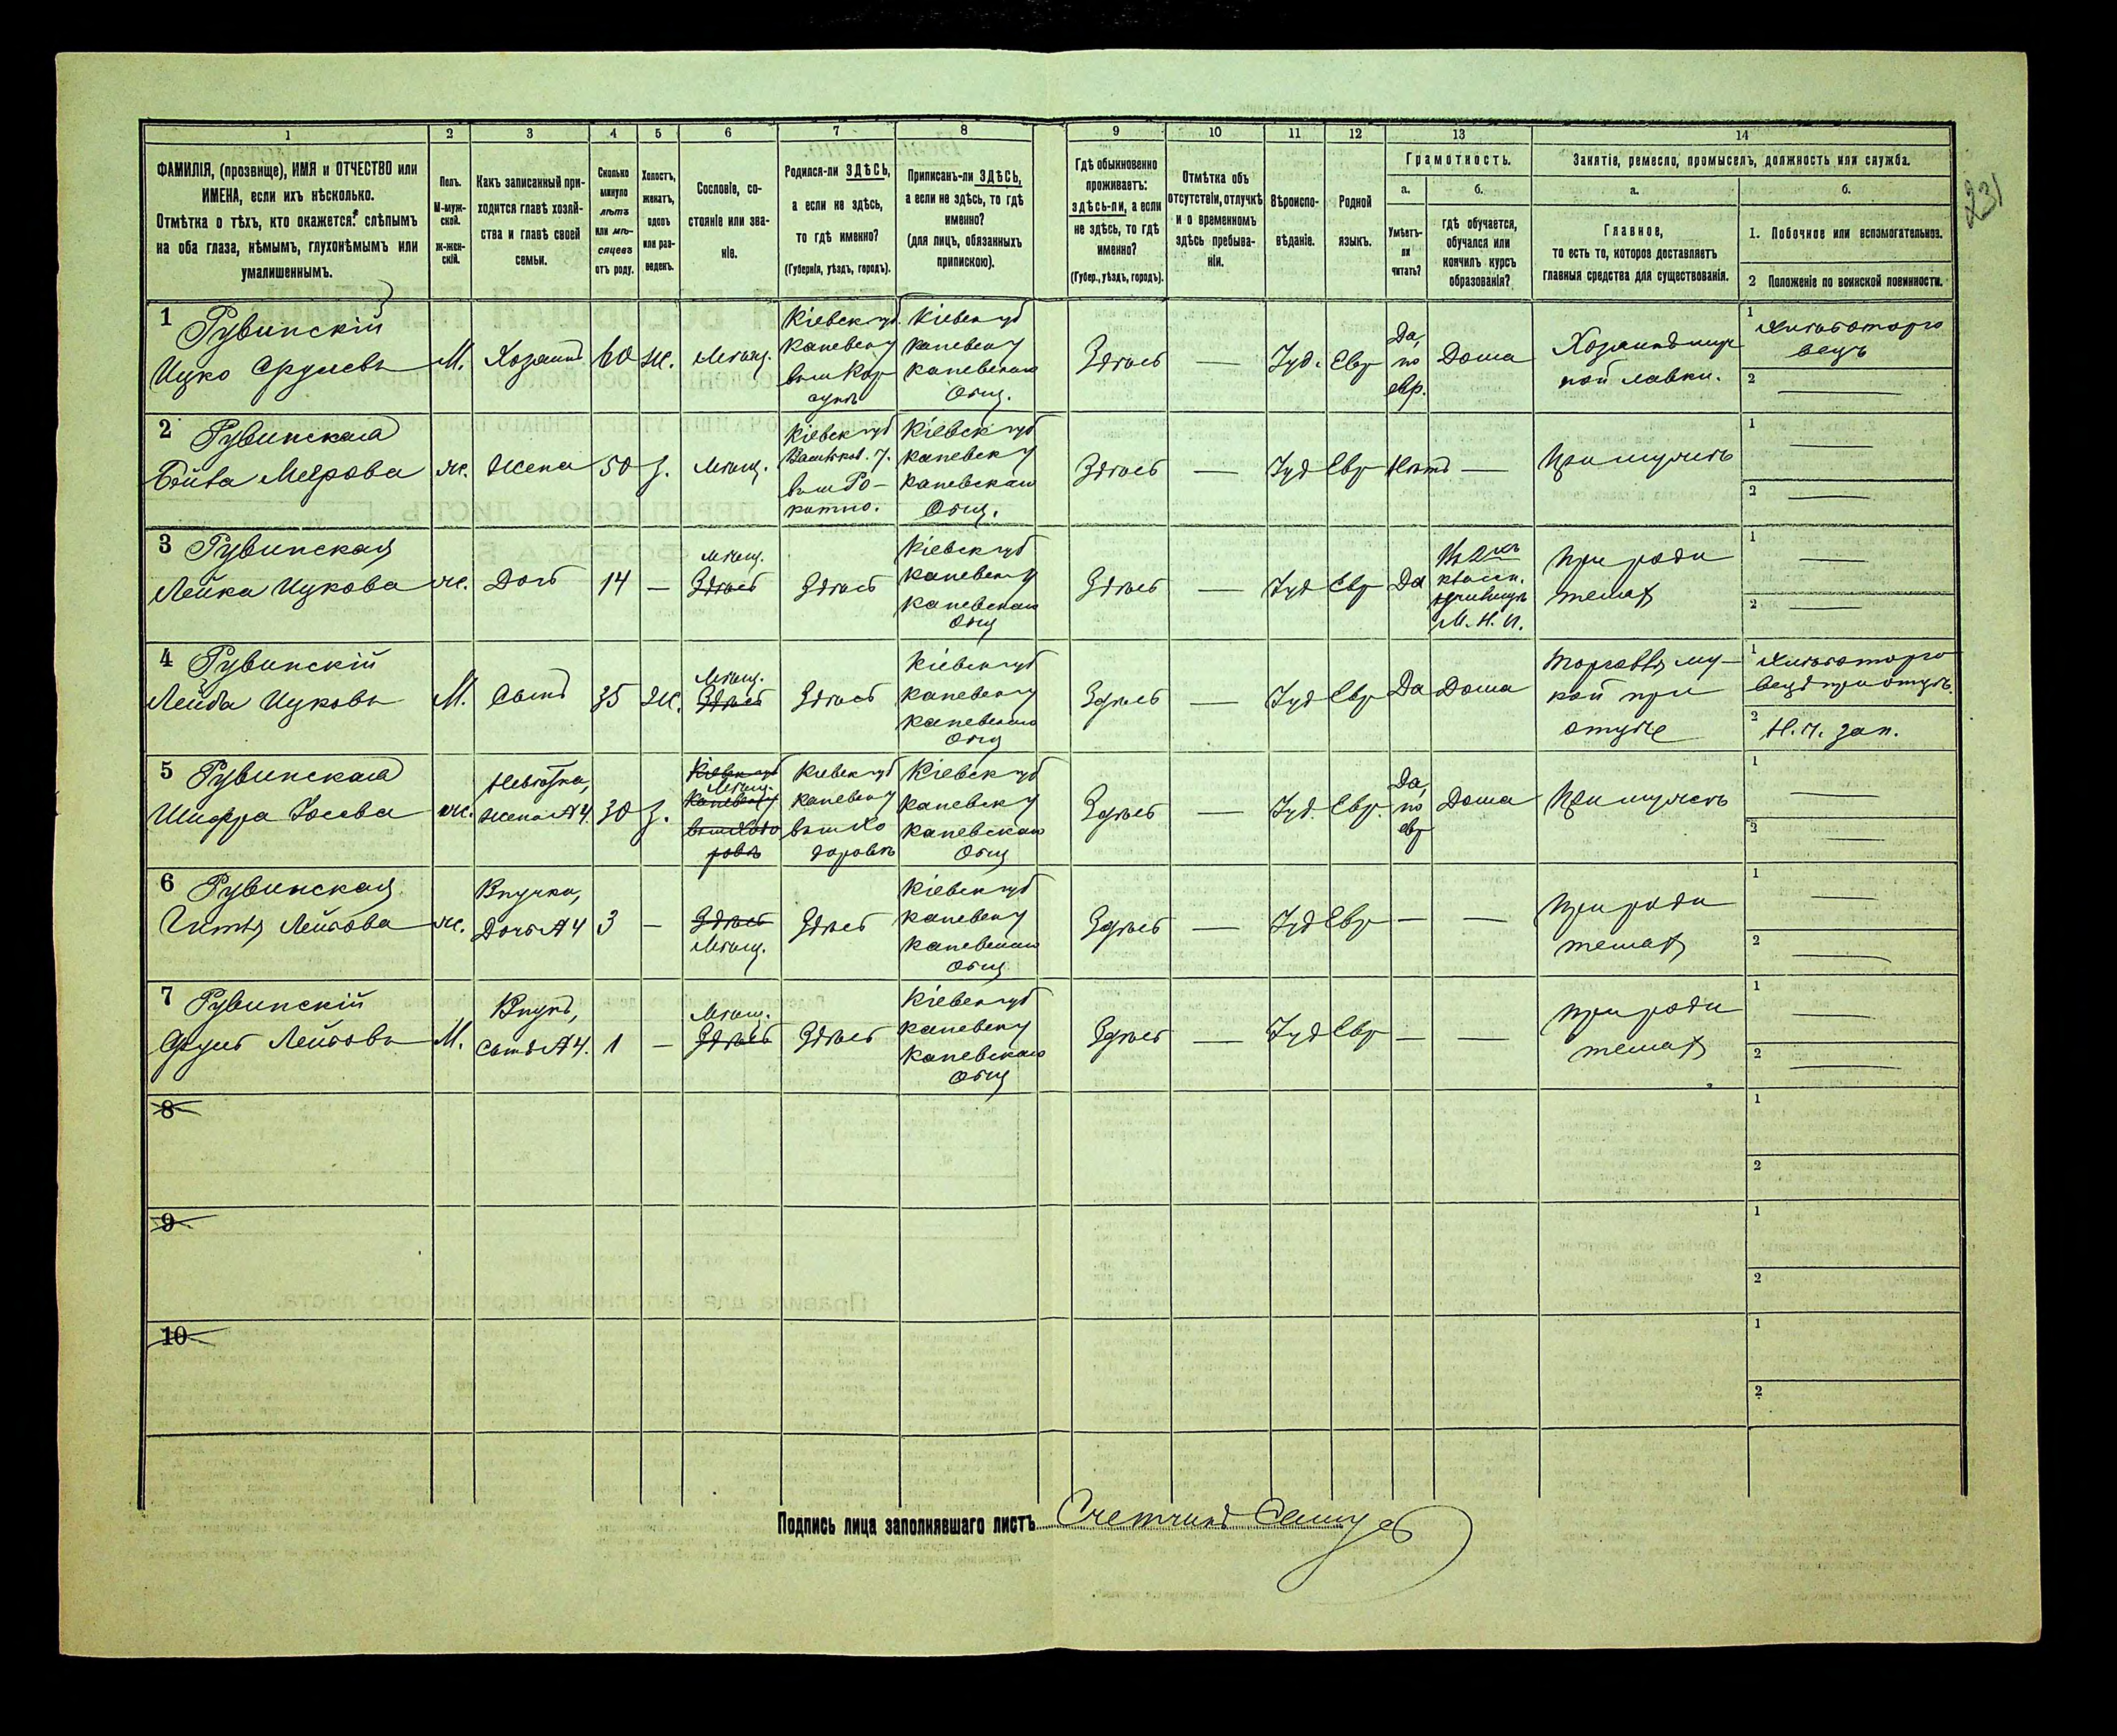 231
1 2 3 4 5 6 7 8 9 10 11 12 13 14
ФАМИЛІЯ, (прозвище), ИМЯ и ОТЧЕСТВО или
ИМЕНА, если ихъ нѣсколько.
Отмѣтка о тѣхъ, кто окажется: слѣпымъ
на оба глаза, нѣмымъ, глухонѣмымъ или
умалишеннымъ.
Полъ.
М-муж-
ской.
ж-жен-
скій.
Какъ записанный при-
ходится главѣ хозяй-
ства и главѣ своей
семьи.
Сколько
минуло
лѣтъ
или мѣ-
сяцевъ
отъ роду.
Холостъ,
женатъ,
вдовъ
или раз-
веденъ.
Сословіе, со-
стояніе или зва-
ніе.
Родился-ли ЗДѢСЬ,
а если не здѣсь,
то гдѣ именно?
(Губернія, уѣздъ, городъ).
Приписанъ-ли ЗДѢСЬ,
а если не здѣсь, то гдѣ
именно?
(для лицъ, обязанныхъ
припискою).
Гдѣ обыкновенно
проживаетъ:
здѣсь-ли, а если
не здѣсь, то гдѣ
именно?
(Губер., уѣздъ, городъ).
Отмѣтка объ
отсутствіи, отлучкѣ
и о временномъ
здѣсь пребыва-
ніи.
Вѣроиспо-
вѣданіе.
Родной
языкъ.
Грамотность.
а.
Умѣетъ-
ли
читать?
б.
гдѣ обучается,
обучался или
кончилъ курсъ
образованія?
Занятіе, ремесло, промыселъ, должность или служба.
а.
Главное,
то есть то, которое доставляетъ
главныя средства для существованія.
б.
1. Побочное или вспомогательное.
2 Положеніе по воинской повинности.
1 Рувинскій
Ицко Срулевъ
М.
Хозяинъ
60
Ж.
Мѣщ.
Кіевск губ.
Каневск у
выш Кор
сунь
Кіевск губ
Каневск у
Каневскаго
Общ.
Здѣсь
—
Іуд.
Евр
Да,
по
евр.
Дома
Хозяинъ муч
ной лавки.
1 Хлѣботорго
вецъ
2 —
2 Рувинская
Меерова
ж.
Жена
50
З.
Мѣщ.
Кіевск губ
Васильков. у.
выш Ро-
китно.
Кіевск губ
Каневск у
Каневскаго
Общ.
Здѣсь
—
Іуд
Евр
Нѣтъ
—
При мужѣ
1 —
2 —
3 Рувинская
Лейка Ицкова
ж.
Дочь
14
—
Мѣщ.
Здѣсь
Здѣсь
Кіевск губ
Каневск у
Каневскаго
Общ
Здѣсь
—
Іуд
Евр
Да
классн.
М. Н. П.
При роди
теляхъ
1 —
2 —
4 Рувинскій
Лейба Ицковъ
М.
Сынъ
35
Ж.
Мѣщ.
Здѣсь
Здѣсь
Кіевск губ
Каневск у
Каневскаго
Общ
Здѣсь
—
Іуд
Евр
Да
Дома
Торговля му-
кой при
отцѣ
1 Хлѣботорго
вецъ при отцѣ.
2 Н. ч. зап.
5 Рувинская
Шифра
ж.
Невѣстка,
жена №4.
30
З.
Кіевск губ
Мѣщ.
Каневск у
выш Ходо
ровъ
Кіевск губ
Каневск у
выш Хо
доровъ
Кіевск губ
Каневск у
Каневскаго
Общ
Здѣсь
—
Іуд.
Евр.
Да,
по
евр
Дома
При мужѣ
1 —
2 —
6 Рувинская
Гитля Лейбова
ж.
Внучка,
Дочь №4
3
—
Здѣсь
Мѣщ.
Здѣсь
Кіевск губ
Каневск у
Каневскаго
Общ
Здѣсь
—
Іуд
Евр
—
—
При роди
теляхъ
1 —
2 —
7 Рувинскій
Сруль Лейбовъ
М.
Внукъ,
Сынъ №4.
1
—
Мѣщ.
Здѣсь
Здѣсь
Кіевск губ
Каневск у
Каневскаго
Общ
Здѣсь
—
Іуд
Евр
—
—
При роди
теляхъ
1 —
2 —
8
1
2
9
1
2
10
1
2
Подпись лица заполнявшаго листъ Счетчикъ